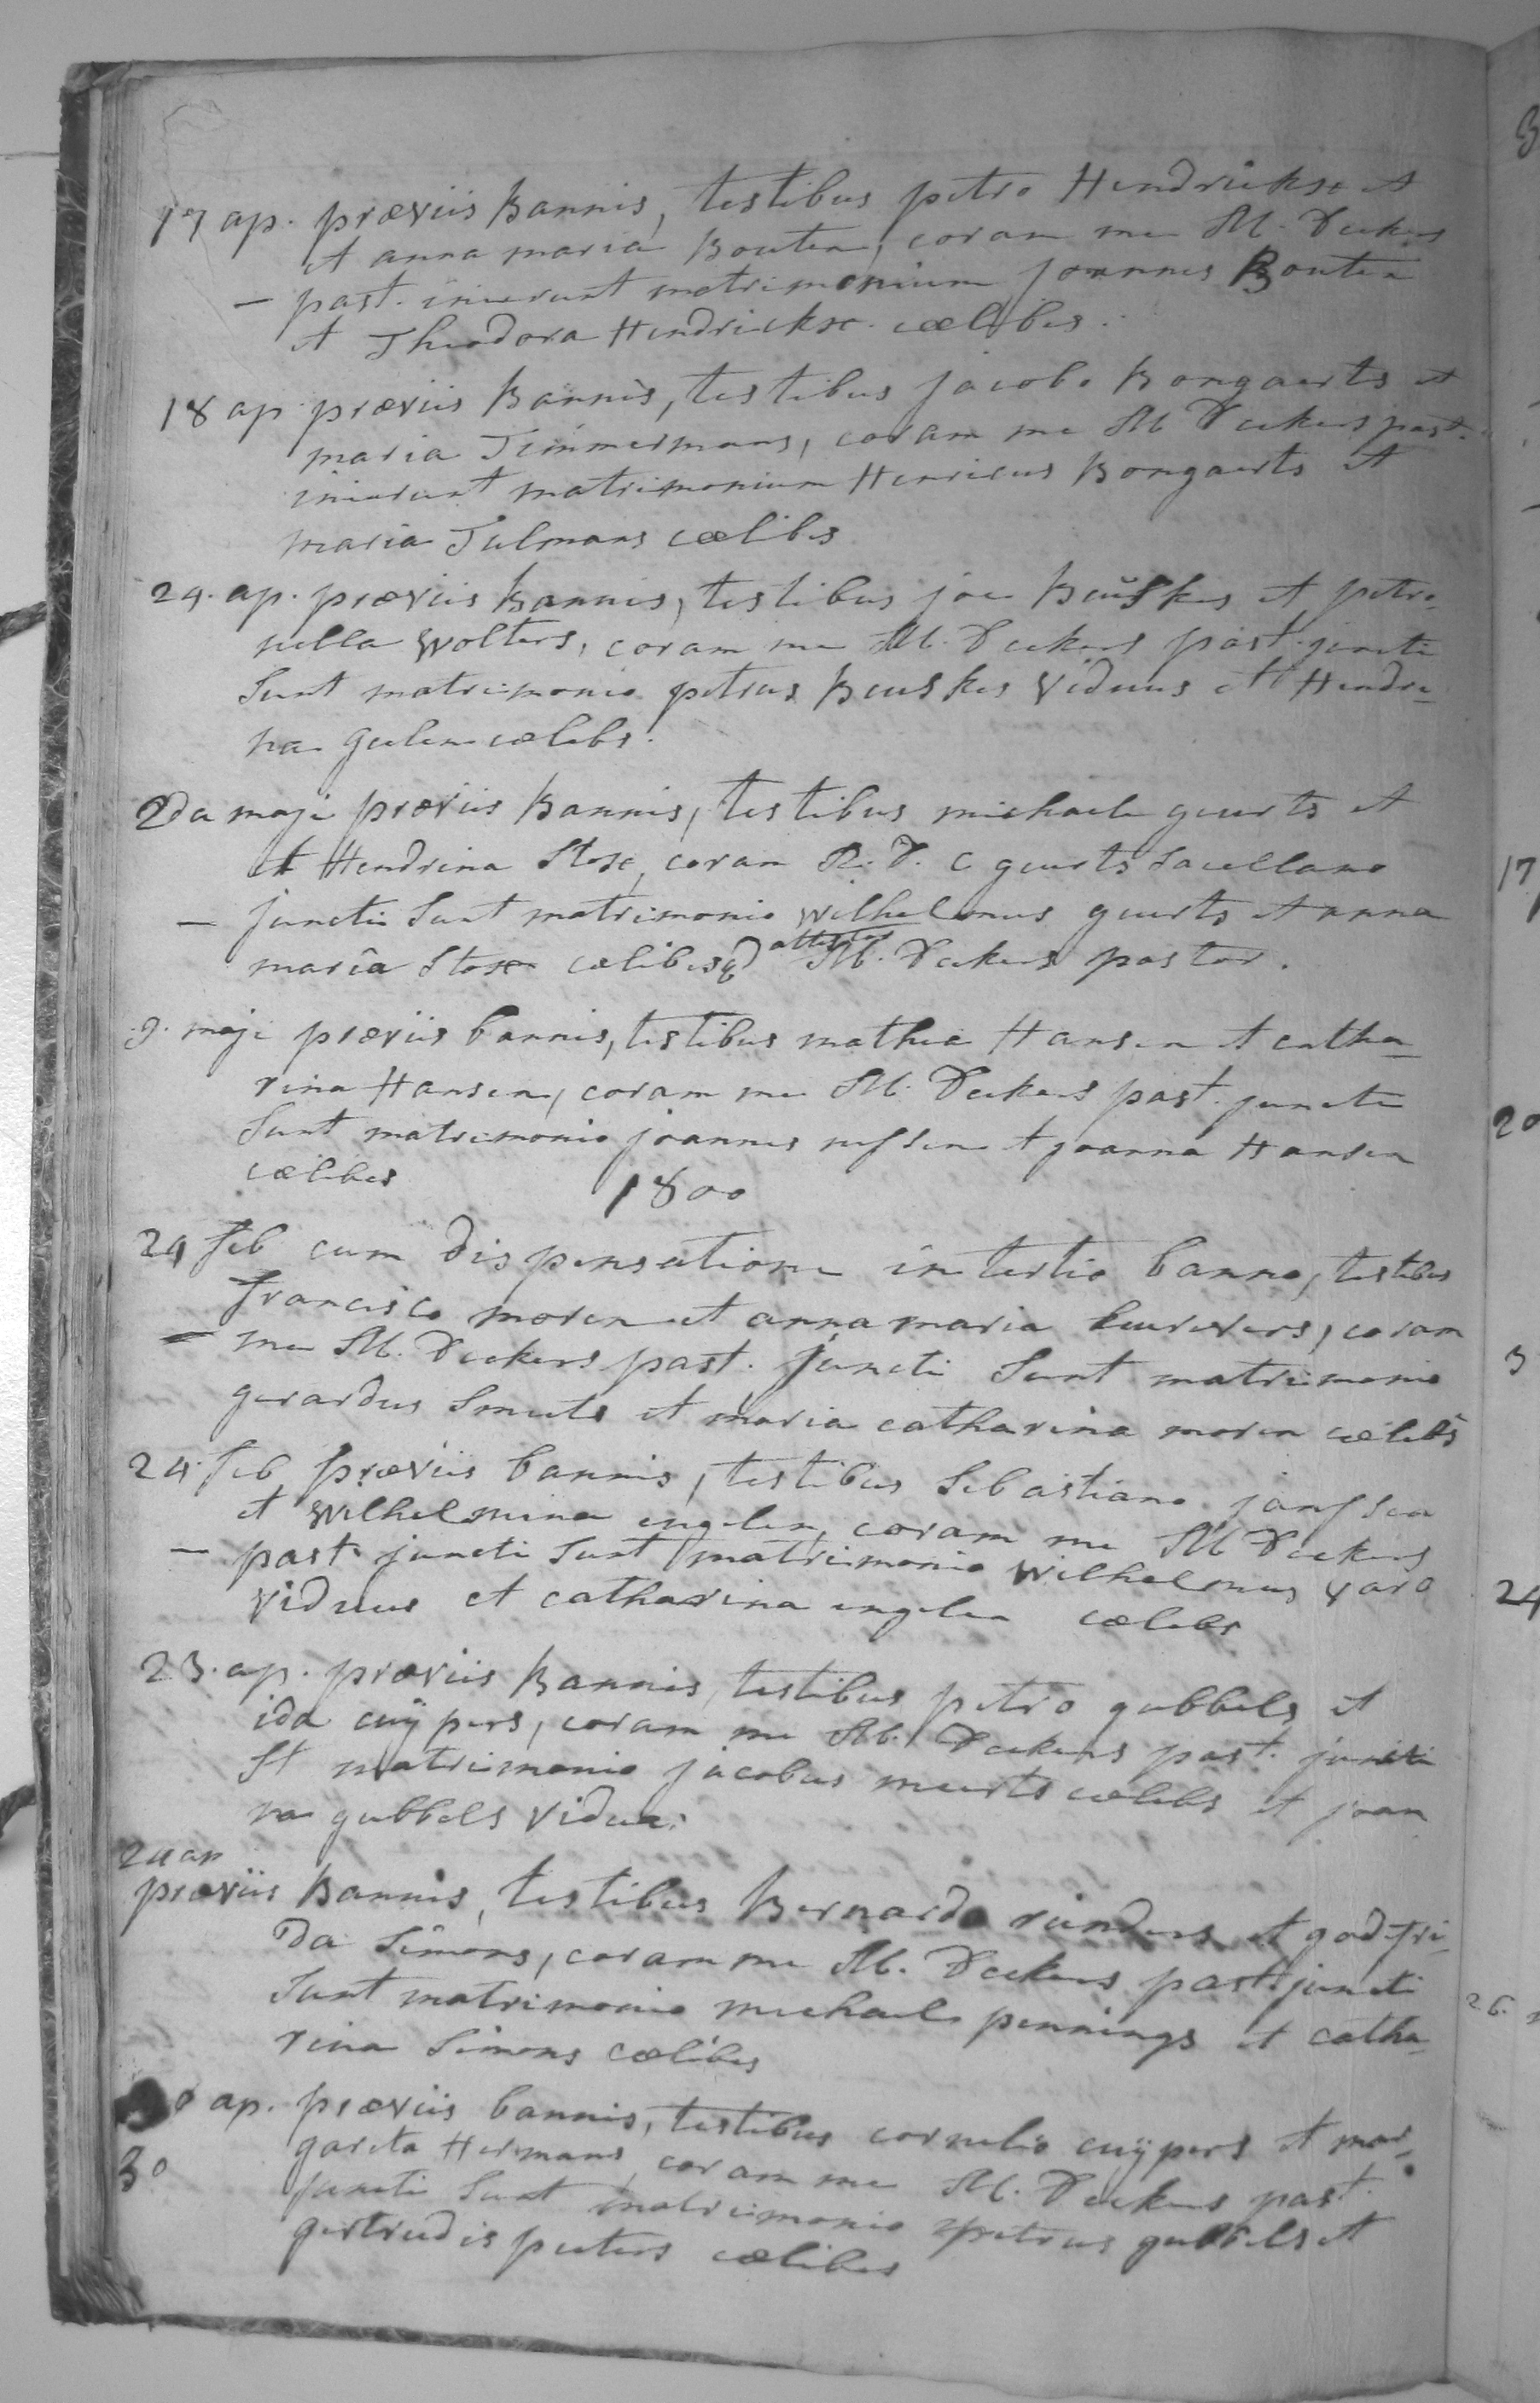 17 ap. præviis Bannis, testibus petro Hendrickx et
et anna maria Bouten, coram me M. Deckers
– past. inierunt matrimonium joannes Bouten
et Theodora Hendrickx. cœlibes.
18 ap. præviis Bannis, testibus jacobo Bongaerts et
maria Timmermans, coram me M Deckers past.
inierunt matrimonium Henricus Bongaerts et
maria Tielmans cœlibes
24. ap. præviis Bannis, testibus joe Beuskes et petro-
nella Wolters, coram me M. Deckers past. juncti
sunt matrimonio petrus Beuskes Viduus et Hendri-
na geelen cœlebs.
2da maji præviis Bannis, testibus michaele geurts et
et Hendrina Stox, coram R. D. C geurts sacellano
– juncti sunt matrimonio wilhelmus geurts et anna
attestor
maria Stox cœlibes M. Deckers pastor.
9. maji præviis bannis, testibus mathia Hansen et catha-
rina Hansen, coram me M. Deckers past. juncti
sunt matrimonio joannes nessen et joanna Hansen
cœlibes
1800
24 feb cum dispensatione in tertio banno, testibus
francisco moren et anna maria coram
– me M. Deckers past. juncti sunt matrimonio
gerardus Smeets et maria catharina moren cœlibes
24. feb præviis bannis, testibus Sebastiano janssen
et Wilhelmina engelen, coram me M Deckers
– past. juncti sunt matrimonio Wilhelmus
viduus et catharina engelen cœlebs
23. ap. præviis Bannis, testibus petro gubbels et
ida cuÿpers, coram me M. Deckers past. juncti
st matrimonio jacobus meurts cœlebs et joan
na gubbels vidua.
24 ap
præviis Bannis, testibus Bernardo reinders et godefri-
da Simons, coram me M. Deckers past. juncti
sunt matrimonio michael pennings et catha-
rina Simons cœlibes
ap. præviis bannis, testibus cornelio cuÿpers et mar-
30 gareta Hermans, coram me M. Deckers past.
juncti sunt matrimonio petrus gubbels et
gertrudis peeters cœlibes
17
20
3
24
26.